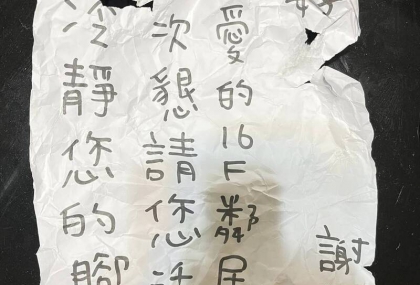 謝
愛的16F鄰居
次懇請您
冷靜您的腳